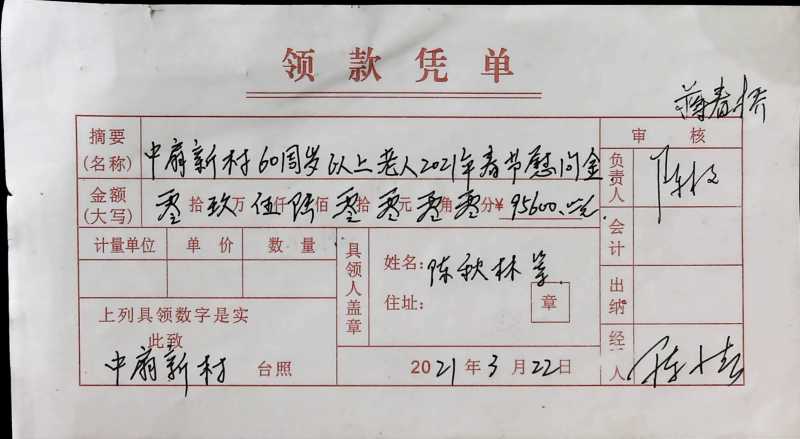 领款凭单
蒋春桥
摘要(名称) 中扇新村60周岁以上老人2021年春节慰问金
审核
金额(大写) 零拾玖万伍仟陆佰零拾零元零角零分¥95600.00元
负责人
计量单位 单价 数量
具领人盖章
姓名: 陈秋林等
住址: 章
会计
出纳
上列具领数字是实
此致
中扇新村 台照
2021年3月22日
经 人